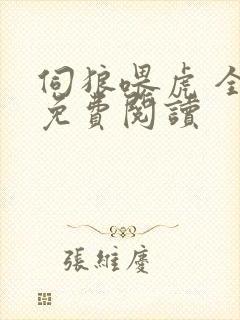 伺狼喂虎 全
免費閱讀
張維慶